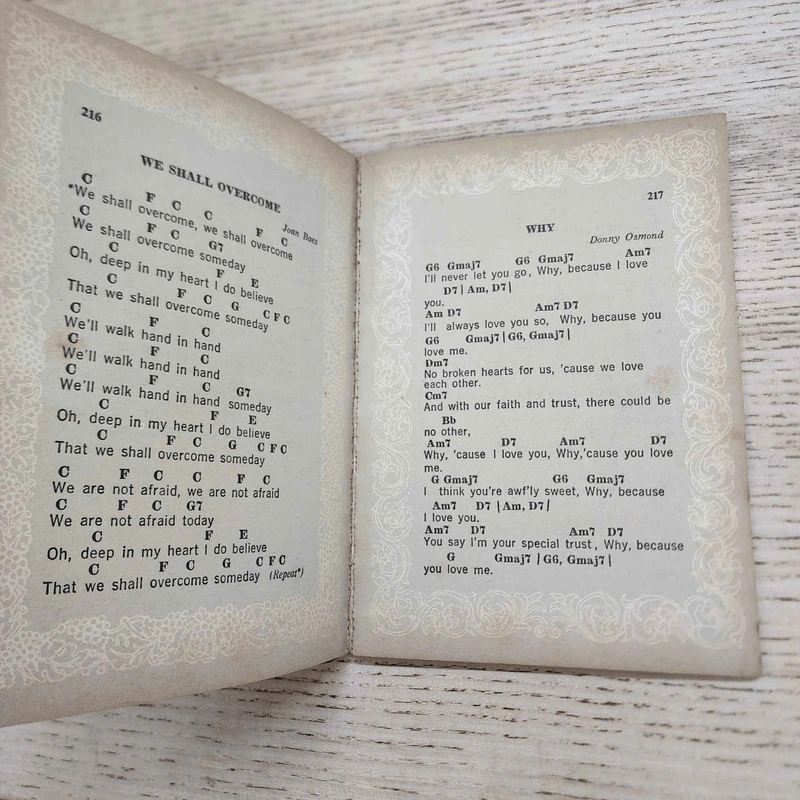 216
WE SHALL OVERCOME
Joan Baez
C F C C F C
*We shall overcome, we shall overcome
C F C G7
We shall overcome someday
C F E
Oh, deep in my heart I do believe
C F C G C F C
That we shall overcome someday
C F C
We'll walk hand in hand
C F C
We'll walk hand in hand
C F C G7
We'll walk hand in hand someday
C F E
Oh, deep in my heart I do believe
C F C G C F C
That we shall overcome someday
C F C C F C
We are not afraid, we are not afraid
C F C G7
We are not afraid today
C F E
Oh, deep in my heart I do believe
C F C G C F C
That we shall overcome someday (Repeat*)
217
WHY
Donny Osmond
G6 Gmaj7 G6 Gmaj7 Am7
I'll never let you go, Why, because I love
D7 | Am, D7|
you.
Am D7 Am7 D7
I'll always love you so, Why, because you
G6 Gmaj7 | G6, Gmaj7 |
love me.
Dm7
No broken hearts for us, 'cause we love
each other.
Cm7
And with our faith and trust, there could be
Bb
no other,
Am7 D7 Am7 D7
Why, 'cause I love you, Why,'cause you love
me.
G Gmaj7 G6 Gmaj7
I think you're awf'ly sweet, Why, because
Am7 D7 | Am, D7 |
I love you.
Am7 D7 Am7 D7
You say I'm your special trust, Why, because
G Gmaj7 | G6, Gmaj7 |
you love me.